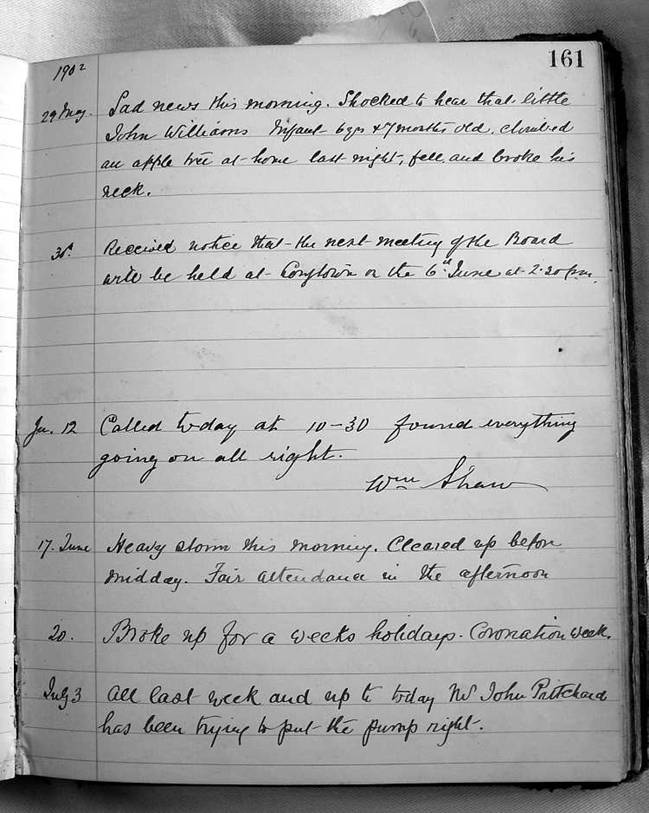 161
1902
29 May. Sad news this morning. Shocked to hear that little
John Williams Infant 6 yrs & 7 months old, climbed
an apple tree at home last night, fell and broke his
neck.
30. Received notice that the next meeting of the Board
will be held at on the 6th June at 2.20 p.m.
Ju. 12 Called today at 10-30 found everything
going on all right.
Wm Shaw
17. June Heavy storm this morning. Cleared up before
midday. Fair attendance in the afternoon
20. Broke up for a weeks holidays. Coronation week.
July 3 All last week and up to today Mr John Pritchard
has been trying to put the pump right.